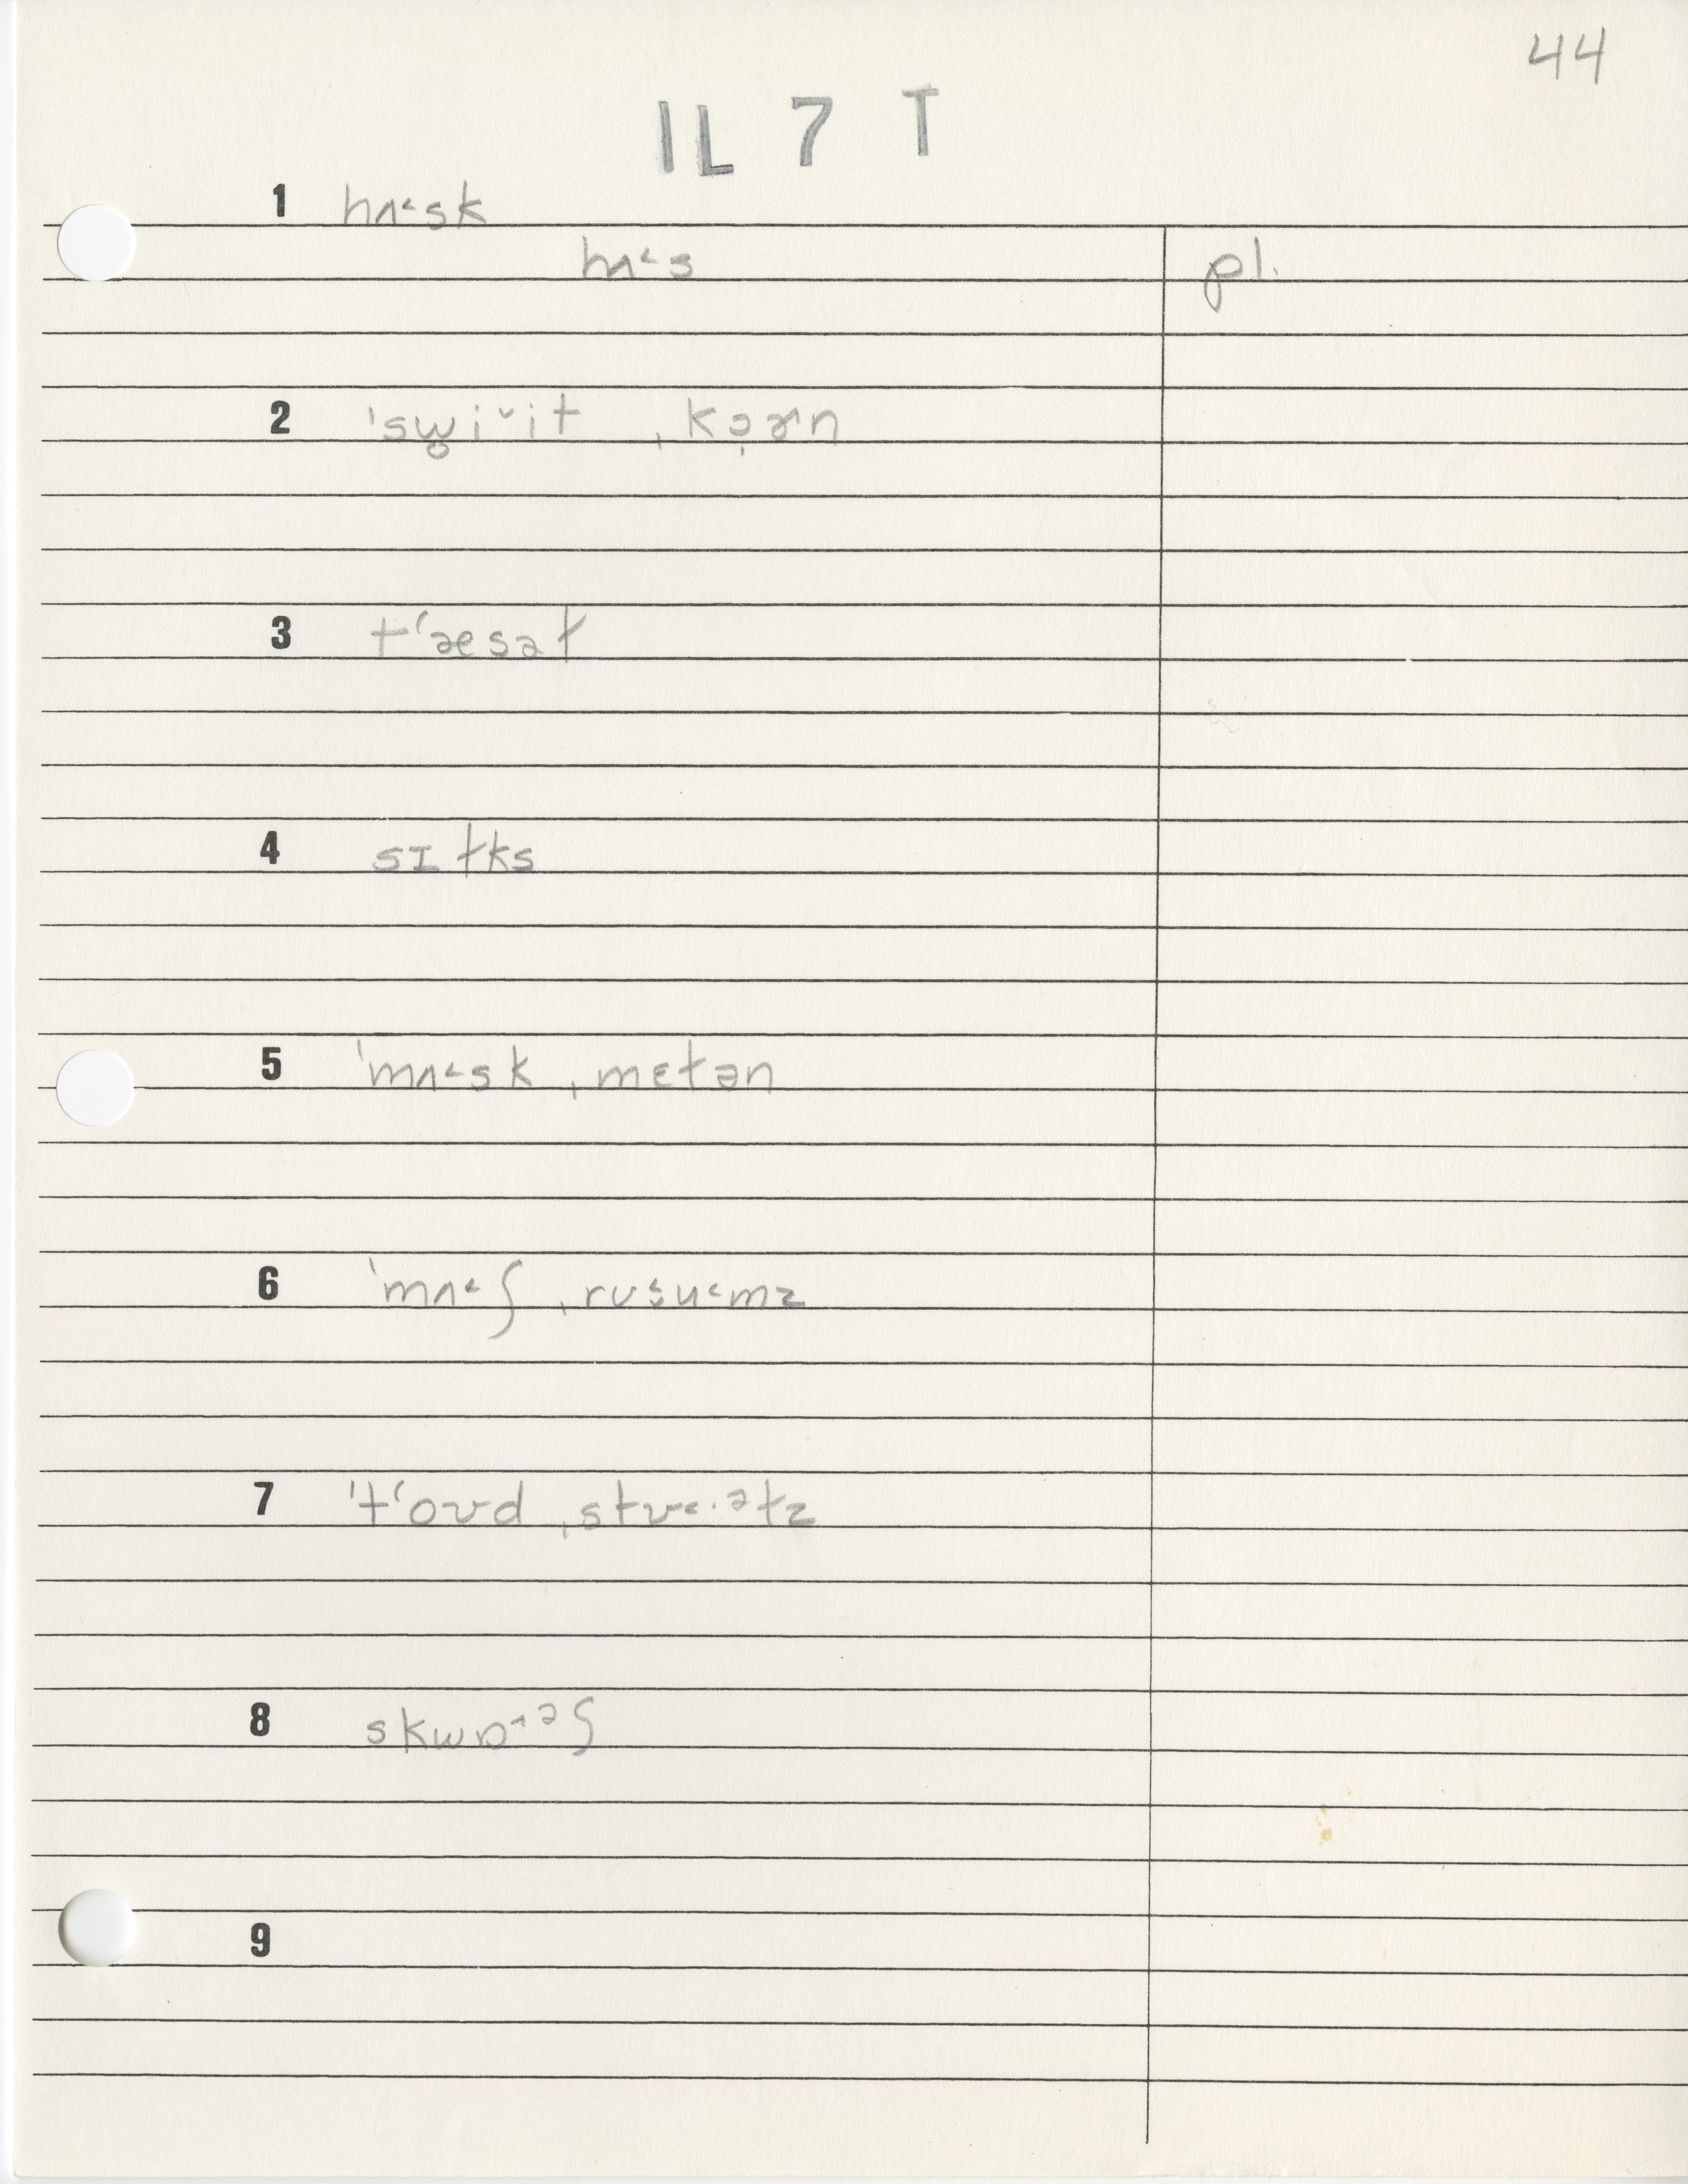 44
IL 7 T
1 hʌ˂sk
hʌ˂s pl.
2 ˈsw̥iˇit ˌkɔ̣ɚn
3 tʻæsəɫ
4 sɪɫks
5 ˈmʌ˂sk ˌmɛtən
6 ˈmʌ˂ʃ ˌrusu˂mz
7 ˈtʻoʊd ˌstu˂·ətz
8 skwɒ˄əʃ
9